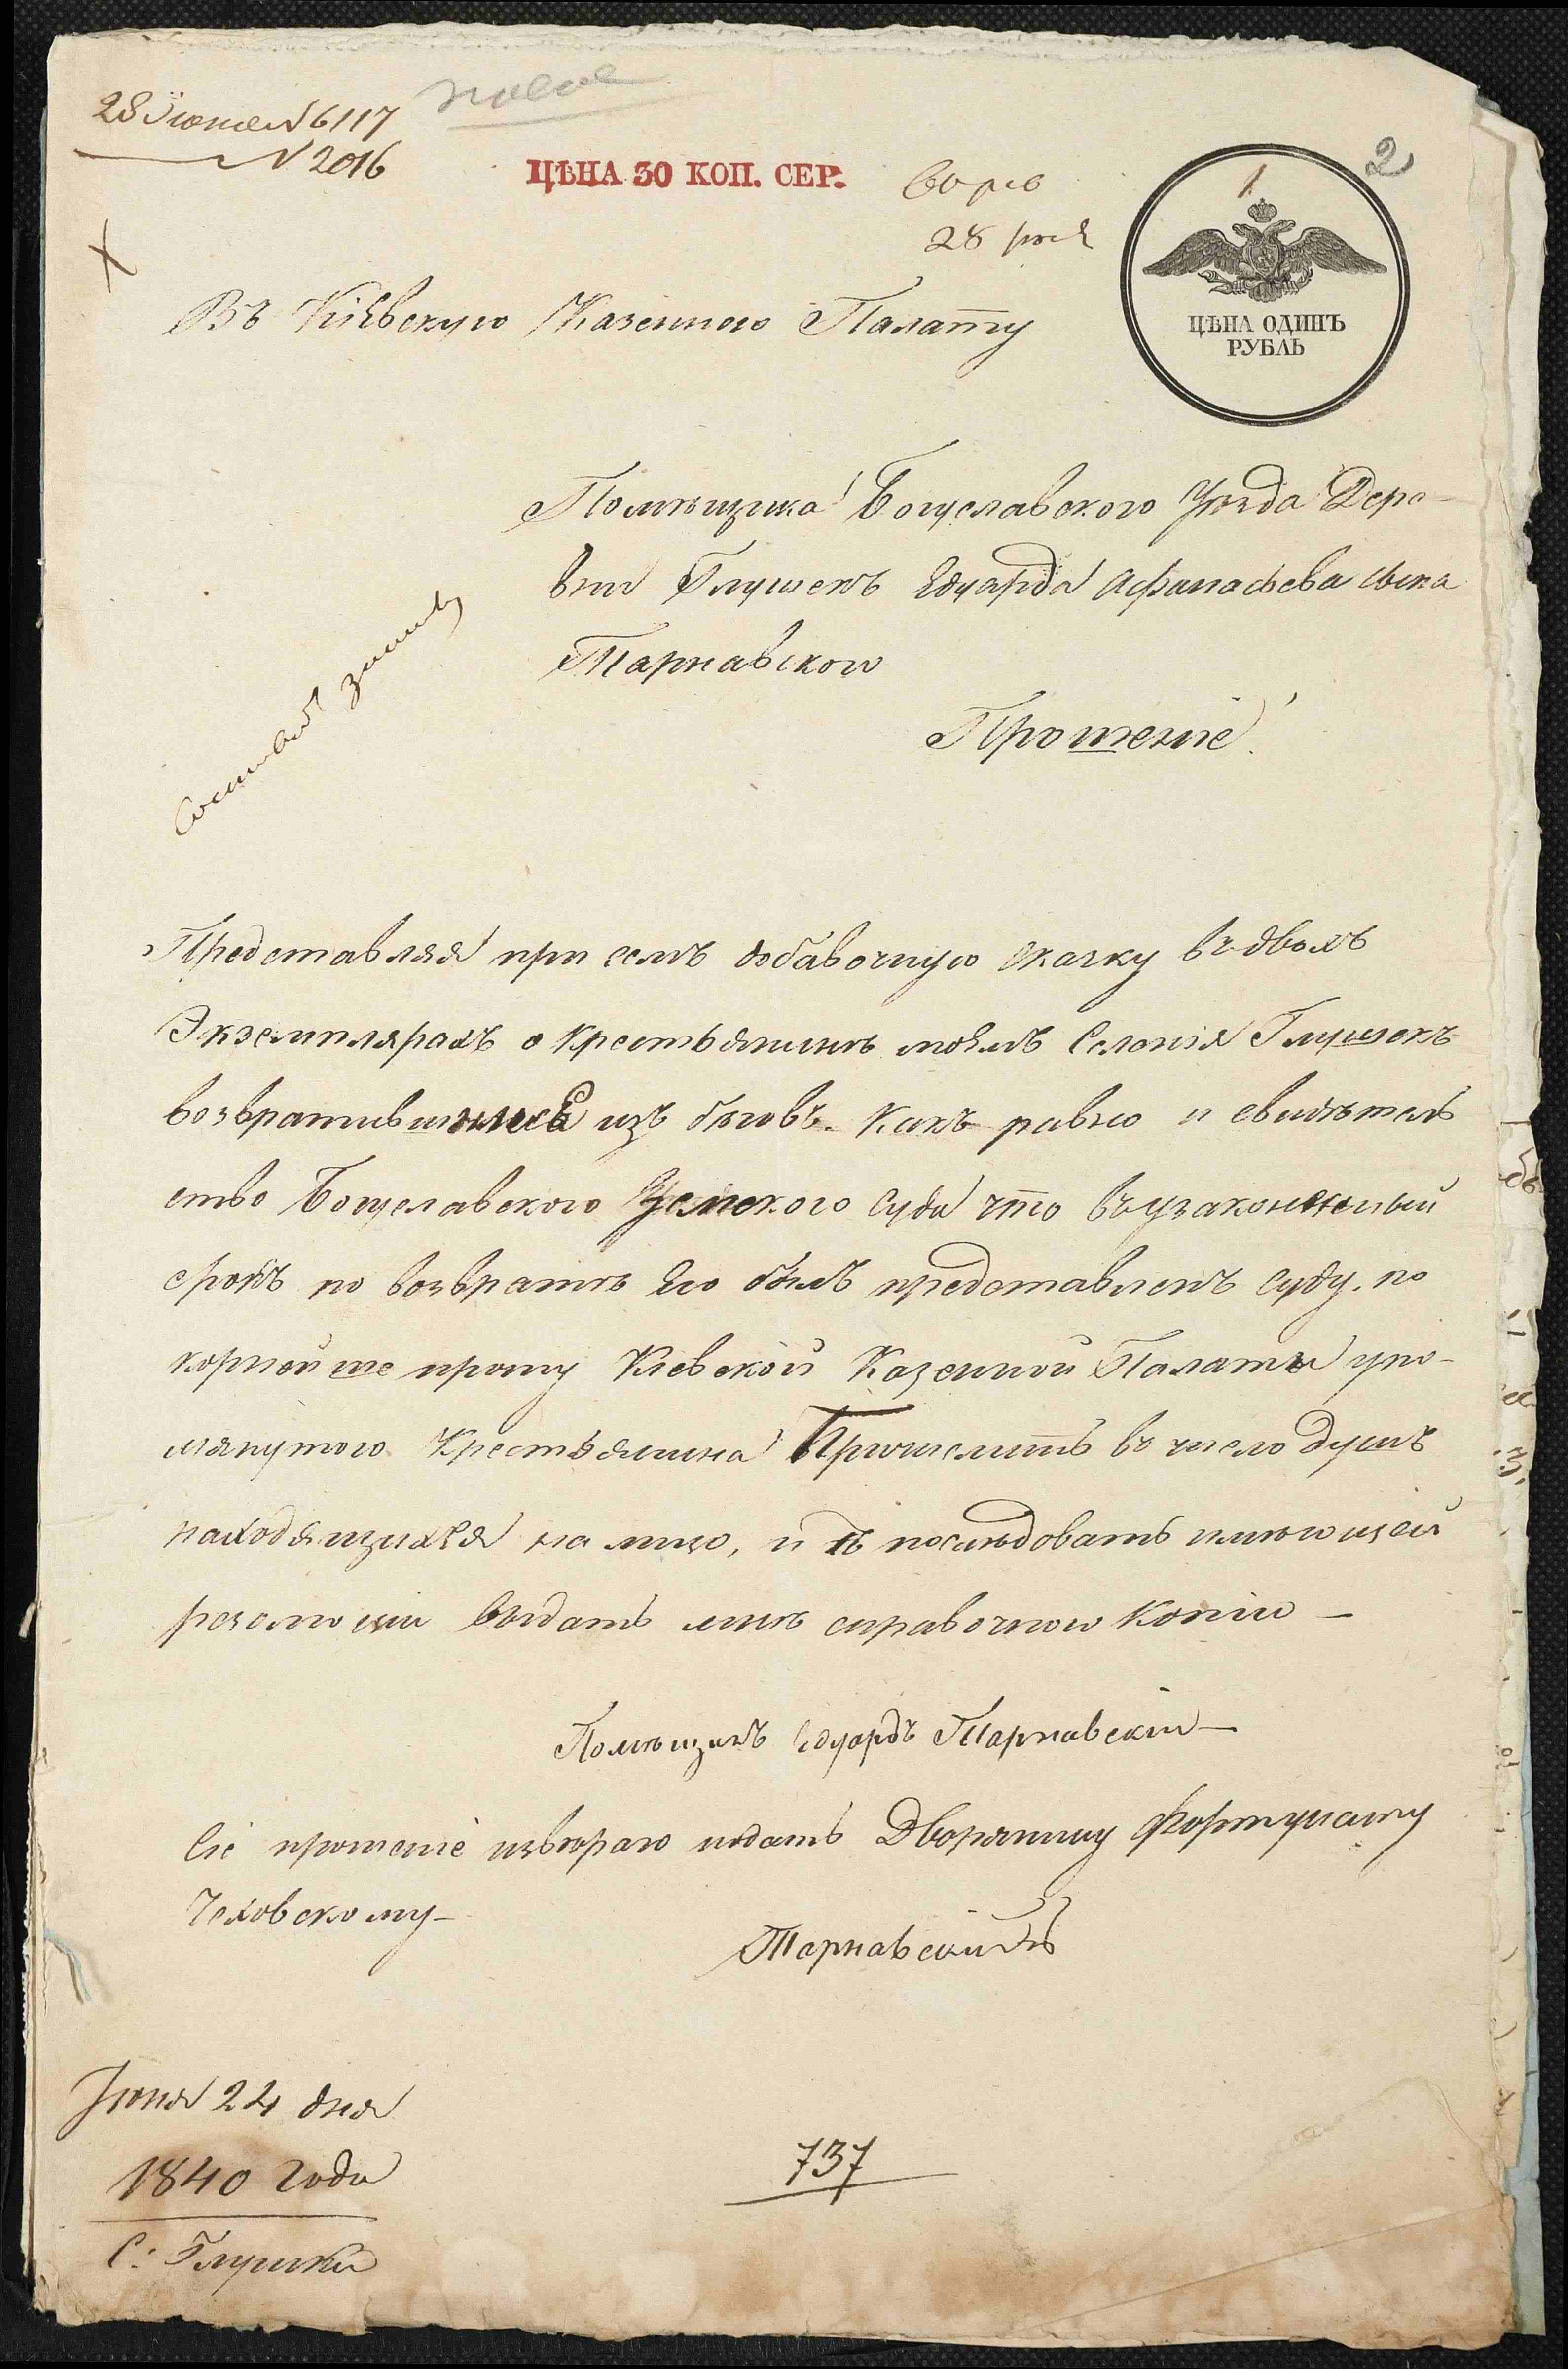 28 Июня N 6117
N 2016
2
1
ЦѢНА 30 КОП. СЕР.
28 
ЦѢНА ОДИНЪ
РУБЛЬ
Въ Кіевскую Казенною Палату
Помѣщика Богуславского Уѣзда Дере-
вни Глушекъ Едуарда Афанасьева сына
Тарнавского
Прошеніе
Представляя при семъ добавочную скаску въ двохъ
Экземплярахъ о Крестьянинѣ моемъ Селенія Глушекъ
возвратившимся изъ бѣговъ. Какъ равно и свидѣтель
ство Богуславского Земского Суда что въ узаконенный
срокъ по возвратѣ Его былъ представленъ Суду. по
корнейше прошу Кіевской Казенной Палаты упо-
мянутого Крестьянина Причислить въ число душъ
находящихся на лицо, и въ последовать имѣющей
резолюціи выдать мнѣ справочною Копіи —
Помѣщикъ Едуардъ Тарнавскій —
Сіе прошеніе извѣраю подать Дворянину Фортунату
Чеховскому —
Тарнавскій
Іюня 24 дня
1840 Года
С: Глушки
737